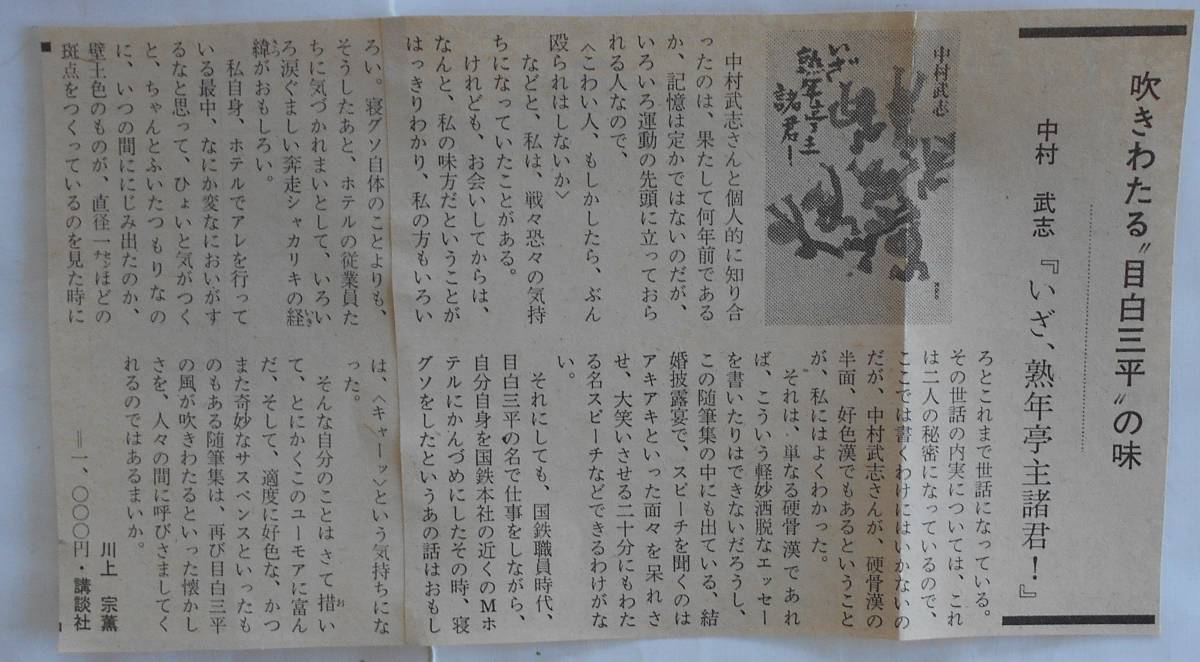 吹きわたる〝目白三平〟の味
中村 武志『いざ、熟年亭主諸君!』
中村武志
いざ
熟年亭主
諸君!
中村武志さんと個人的に知り合
ったのは、果たして何年前である
か、記憶は定かではないのだが、
いろいろ運動の先頭に立っておら
れる人なので、
〈こわい人、もしかしたら、ぶん
殴られはしないか〉
などと、私は、戦々恐々の気持
ちになっていたことがある。
けれども、お会いしてからは、
なんと、私の味方だということが
はっきりわかり、私の方もいろい
ろとこれまで世話になっている。
その世話の内実については、これ
は二人の秘密になっているので、
ここでは書くわけにはいかないの
だが、中村武志さんが、硬骨漢の
半面、好色漢でもあるということ
が、私にはよくわかった。
それは、単なる硬骨漢であれ
ば、こういう軽妙洒脱なエッセー
を書いたりはできないだろうし、
この随筆集の中にも出ている、結
婚披露宴で、スピーチを聞くのは
アキアキといった面々を呆れさ
せ、大笑いさせる二十分にもわた
る名スピーチなどできるわけがな
い。
それにしても、国鉄職員時代、
目白三平の名で仕事をしながら、
自分自身を国鉄本社の近くのMホ
テルにかんづめにしたその時、寝
グソをしたというあの話はおもし
ろい。寝グソ自体のことよりも、
そうしたあと、ホテルの従業員た
ちに気づかれまいとして、いろい
ろ涙ぐましい奔走シャカリキの経いき
緯さつがおもしろい。
私自身、ホテルでアレを行って
いる最中、なにか変なにおいがす
るなと思って、ひょいと気がつく
と、ちゃんとふいたつもりなの
に、いつの間ににじみ出たのか、
壁土色のものが、直径一センチほどの
斑点をつくっているのを見た時に
は、〈キャーッ〉という気持ちにな
った。
そんな自分のことはさて措おい
て、とにかくこのユーモアに富ん
だ、そして、適度に好色な、かつ
また奇妙なサスペンスといったも
のもある随筆集は、再び目白三平
の風が吹きわたるといった懐かし
さを、人々の間に呼びさましてく
れるのではあるまいか。
川上 宗薫
=一、〇〇〇円・講談社